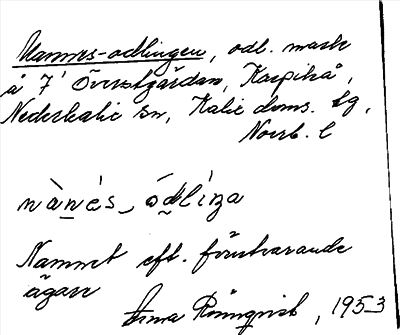 Nannes-odlingen, odl. mark
å 7¹ Överstgården, Karpikå,
Nederkalix sn, Kalix doms. tg,
Norrb. l
nànes-ódlíŋa
Namnet eft. förutvarande
ägare
Erna Rönnqvist, 1953